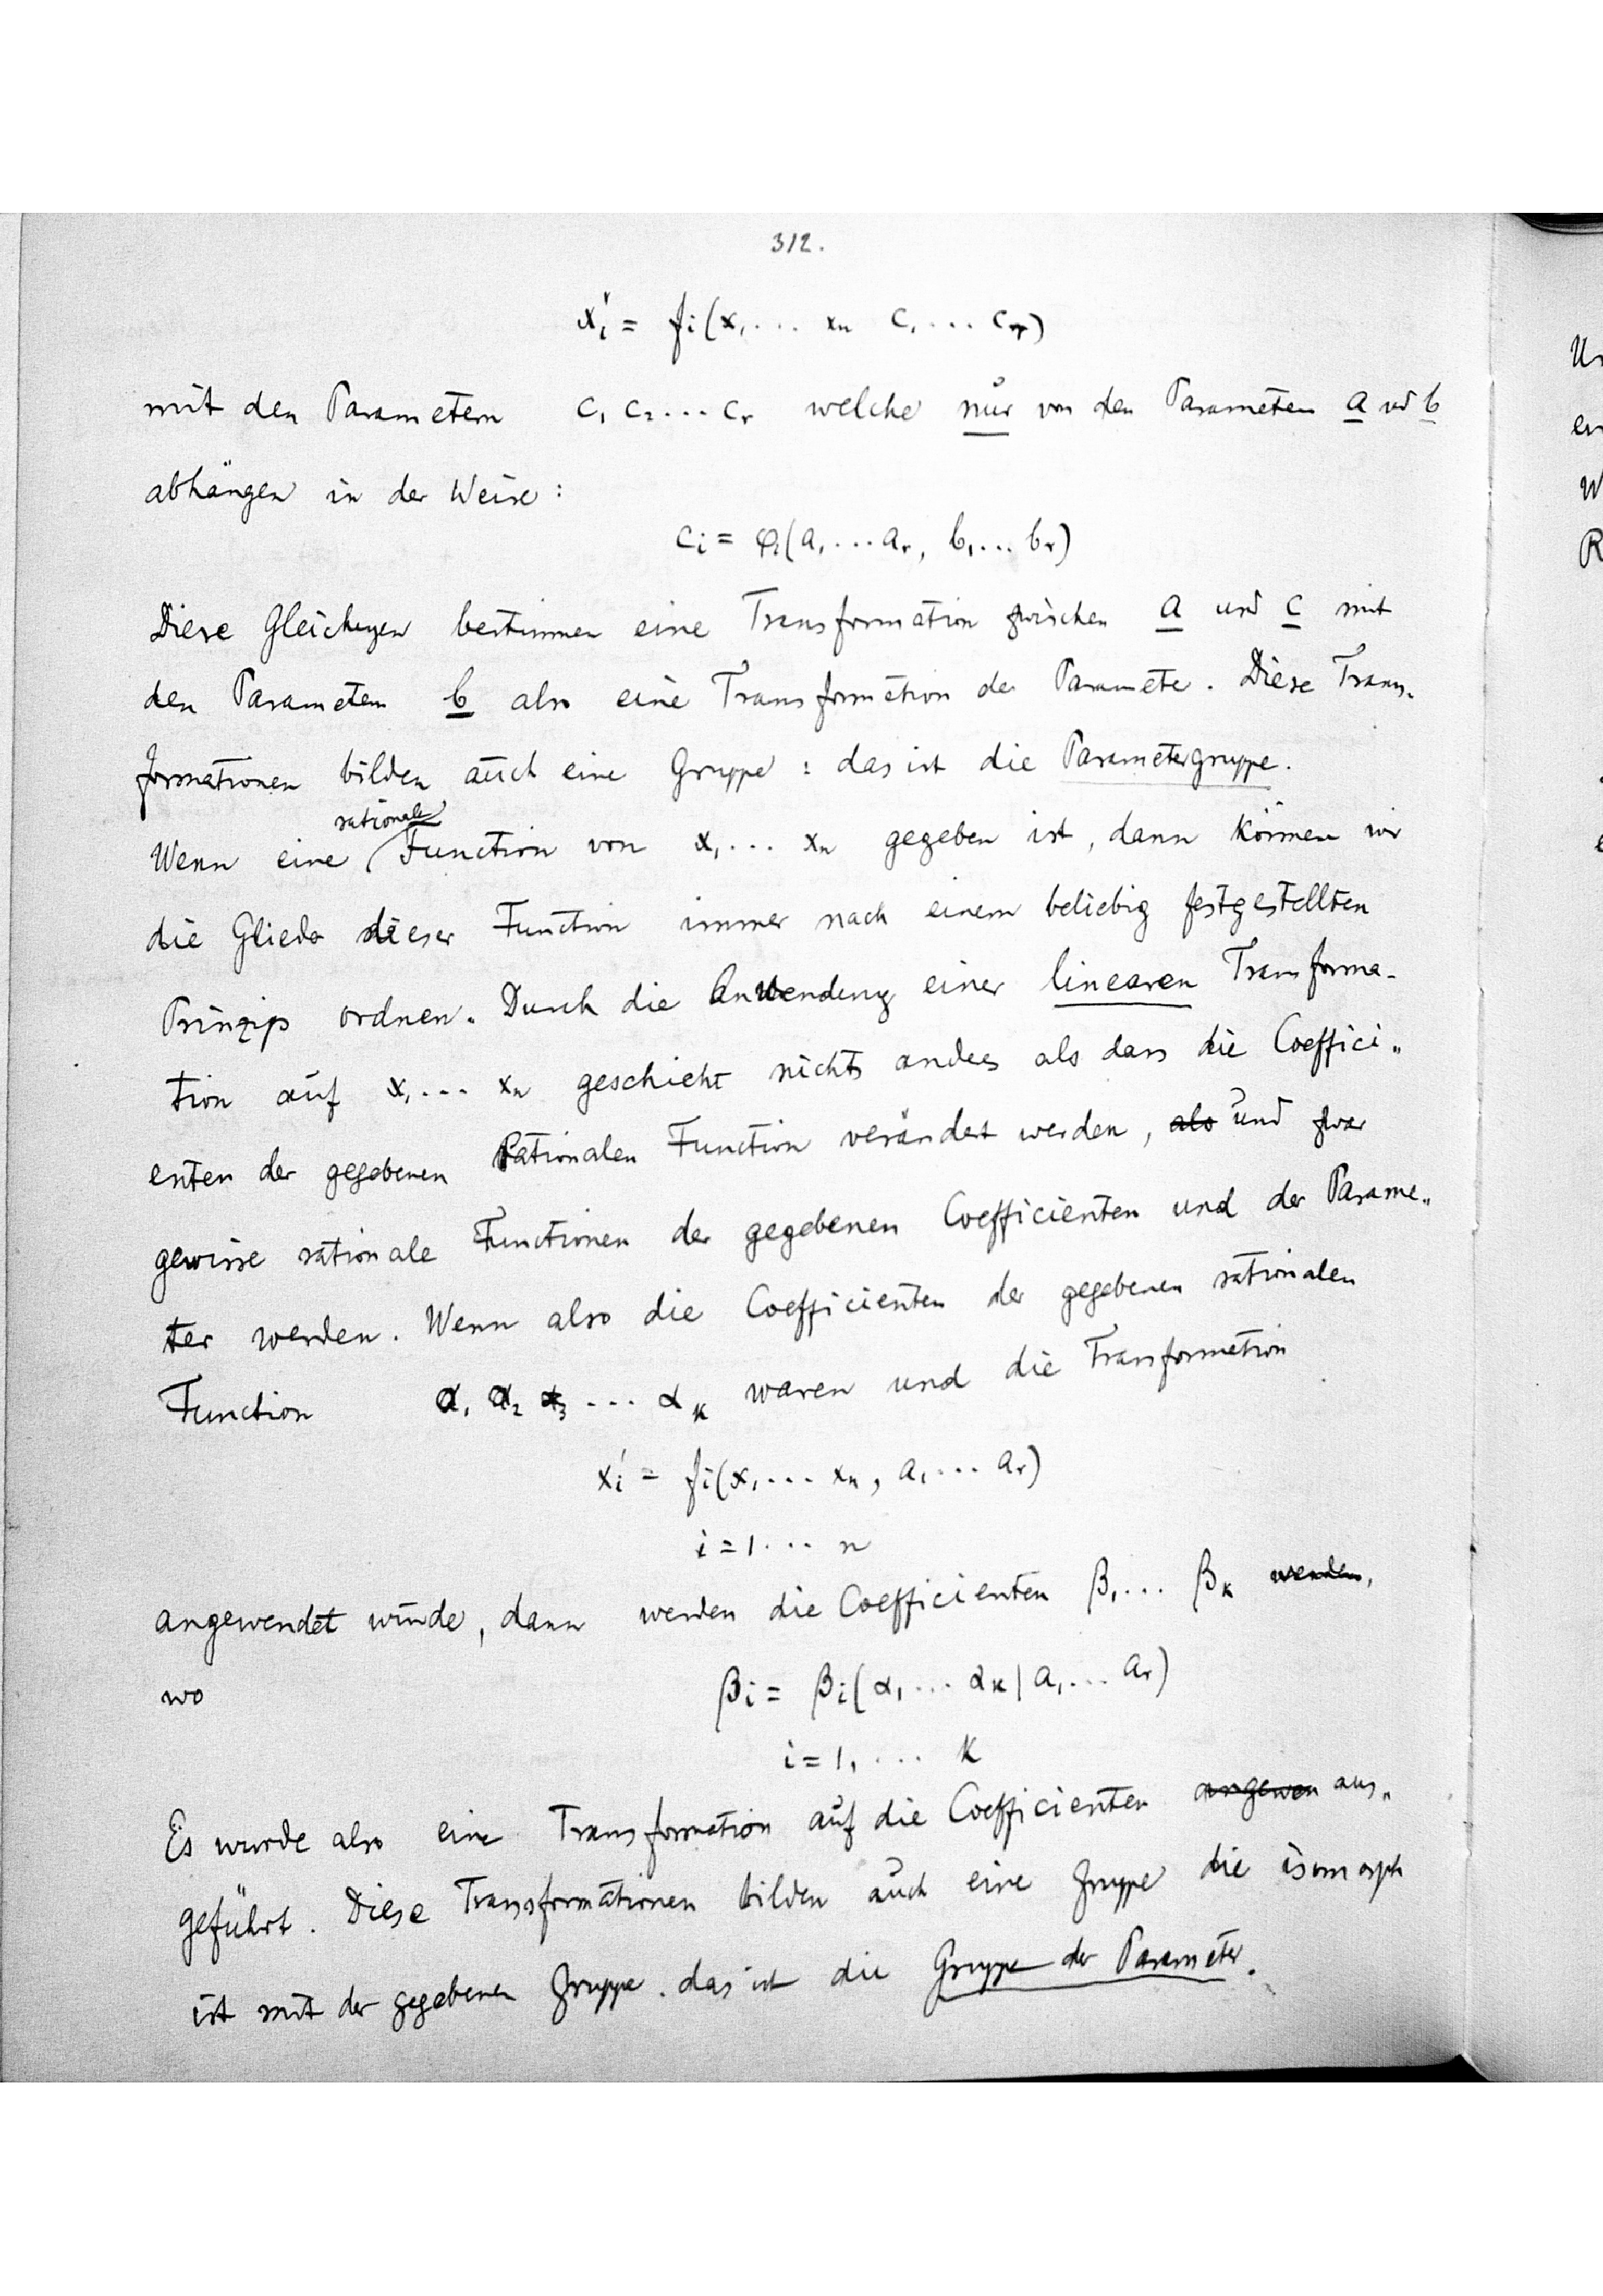 312.
x'i = fi(x1 ... xn c1 ... cr)
mit den Parametern c1 c2 ... cr welche nur von den Parametern a und b
abhängen in der Weise :
ci = φi(a1 ... ar, b1 ... br)
Diese Gleichungen bestimmen eine Transformation zwischen a und c mit
den Parametern b also eine Transformation der Parameter. Diese Trans-
formationen bilden auch eine Gruppe : das ist die Parametergruppe.
rationale
Wenn eine Function von x1 ... xn gegeben ist, dann können wir
die Glieder dieser Function immer nach einem beliebig festgestellten
Prinzip ordnen. Durch die Anwendung einer linearen Transforma-
tion auf x1 ... xn geschieht nichts anderes als dass die Coeffici-
enten der gegebenen rationalen Function verändert werden, also und zwar
gewisse rationale Functionen der gegebenen Coefficienten und der Parame-
ter werden. Wenn also die Coefficienten der gegebenen rationalen
Function α1 α2 α3 ... αk waren und die Transformation
x'i = fi(x1 ... xn, a1 ... ar)
i = 1 ... n
angewendet würde, dann werden die Coefficienten β1 ... βk werden,
wo βi = βi(α1 ... αk | a1 ... ar)
i = 1, ... k
Es wurde also eine Transformation auf die Coefficienten angewen aus-
geführt. Diese Transformationen bilden auch eine Gruppe die isomorph
ist mit der gegebenen Gruppe. das ist die Gruppe der Parameter.